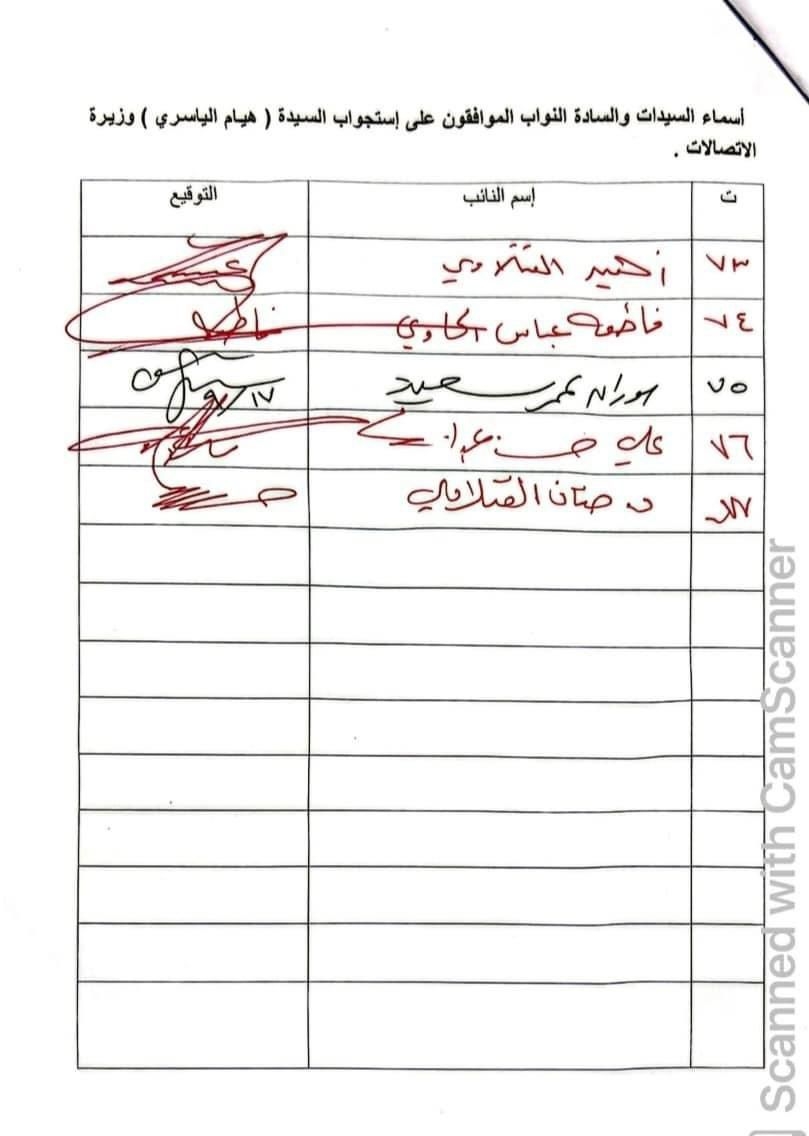 أسماء السيدات والسادة النواب الموافقون على إستجواب السيدة ( هيام الياسري ) وزيرة
الاتصالات .
ت إسم النائب التوقيع
٧٣ زهير الفتلاوي
٧٤ فاطمة عباس
٧٥ سوران عمر سعيد
٧٦ علي
٧٧ د. حنان الفتلاوي
Scanned with CamScanner